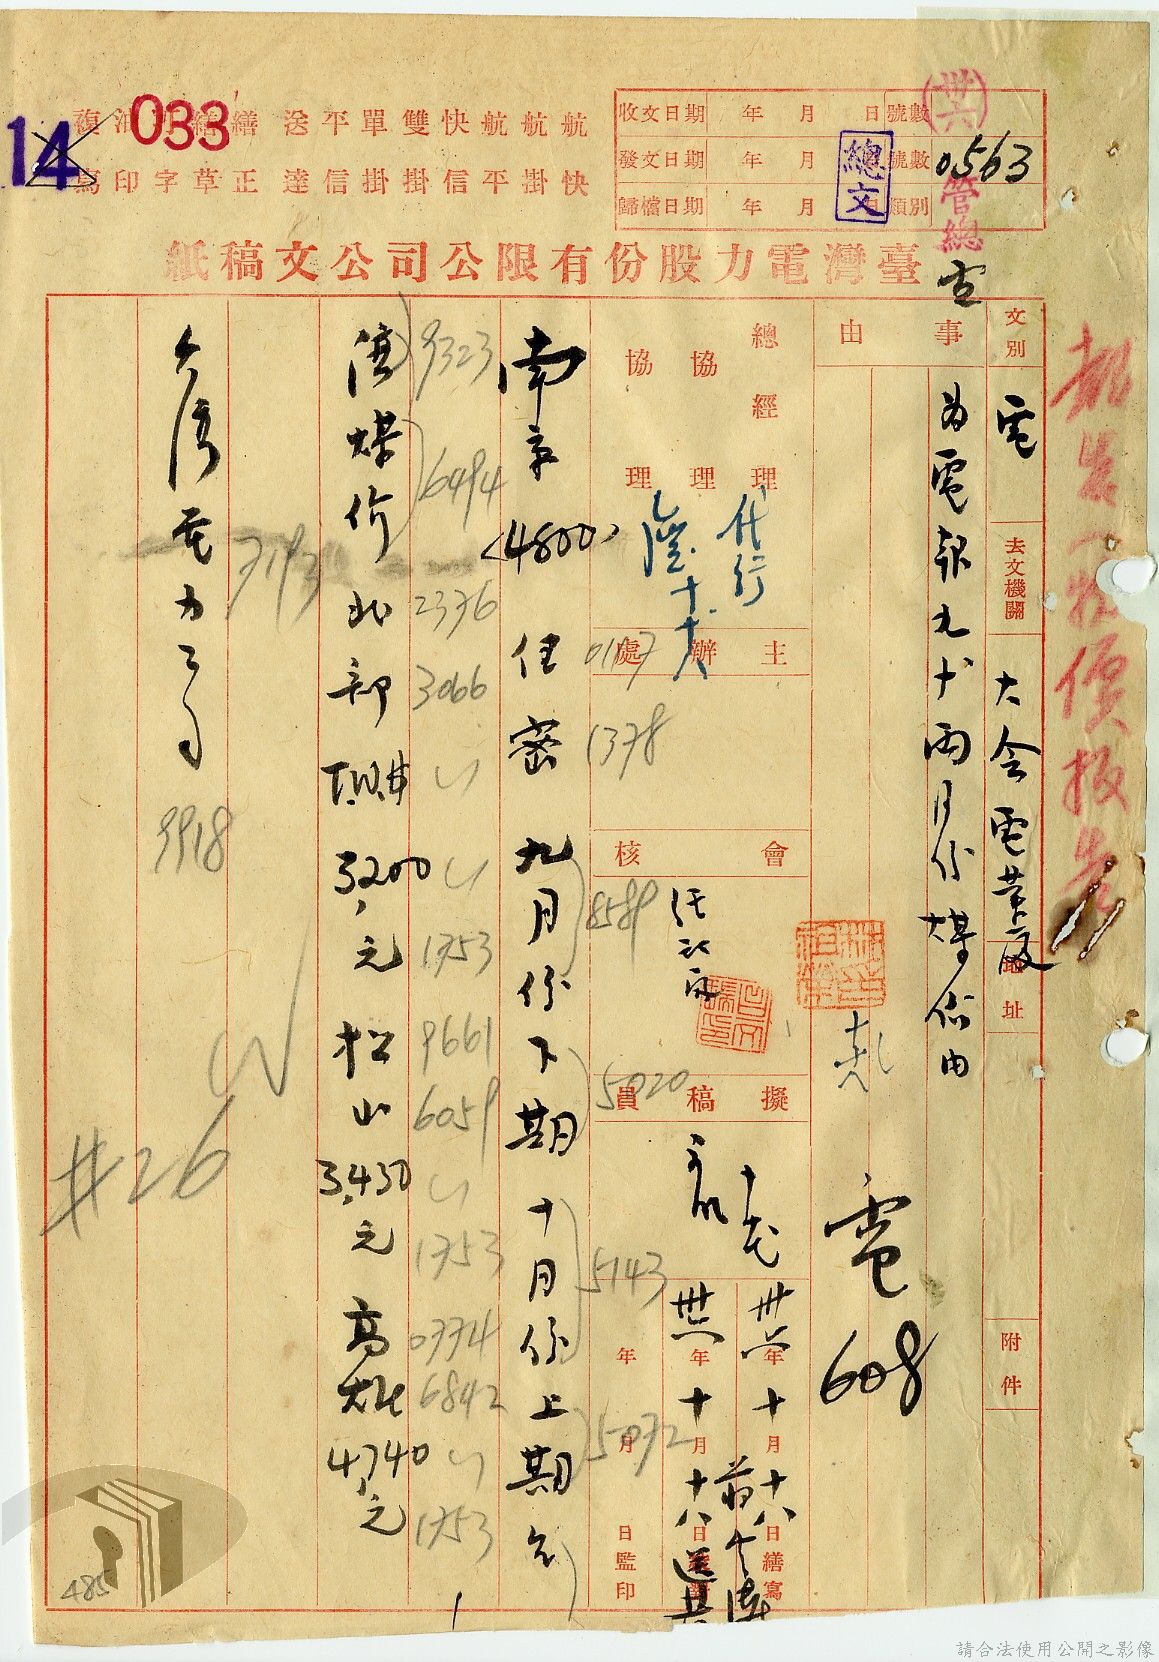 033
14
複寫 油印 繕字 繕草 繕正 送達 平信 單掛 雙掛 快信 航平 航掛 航快
收文日期 年 月 日 號數
發文日期 年 月 日 號數
歸檔日期 年 月 日 類別
總文
卅六
管總
0563
臺灣電力股份有限公司公文稿紙
文別 電
去文機關 大會電業處
地址
附件
事由
為電報九十兩月份煤價由
電
608
總經理
協理
協理
代行
主辦處
會核
擬稿員
卅六年十月十八日繕寫
卅六年十月十八日
年 月 日監印
南京
(4800)
任密
九月份下期十月份上期台
0117
1378
8589
5020
5143
5072
灣煤价北部
3200元
松山
3,430元
高雄
4,740元
9323
6494
2376
3066
1753
9661
6059
1753
0774
6842
1753
台灣電力公司
7193
9918
#26
485
請合法使用公開之影像